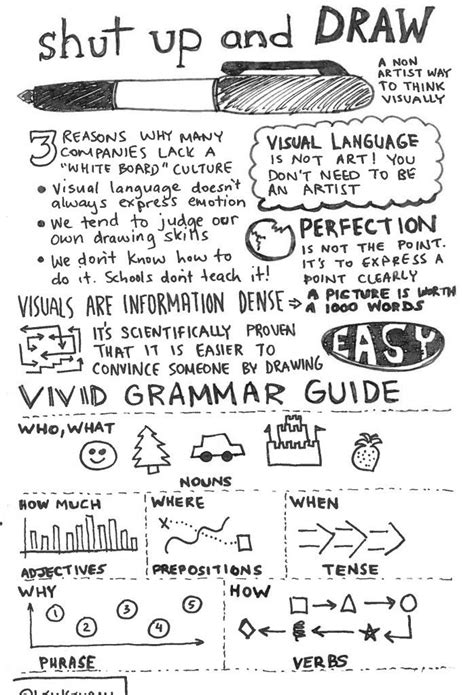 shut up and DRAW
A NON
ARTIST WAY
TO THINK
VISUALLY
3 REASONS WHY MANY
COMPANIES LACK A
"WHITE BOARD" CULTURE
• Visual language doesn't
always express emotion
• We tend to judge our
own drawing skills
• We don't know how to
do it. Schools dont teach it!
VISUAL LANGUAGE
IS NOT ART! YOU
DON'T NEED TO BE
AN ARTIST
PERFECTION
IS NOT THE POINT.
IT'S TO EXPRESS A
POINT CLEARLY
VISUALS ARE INFORMATION DENSE ⇒ A PICTURE IS WORTH
A 1000 WORDS
IT'S SCIENTIFICALLY PROVEN
THAT IT IS EASIER TO
CONVINCE SOMEONE BY DRAWING
EASY
VIVID GRAMMAR GUIDE
WHO, WHAT
NOUNS
HOW MUCH
ADJECTIVES
WHERE
X
PREPOSITIONS
WHEN
TENSE
WHY
1 2 3 4 5
PHRASE
HOW
VERBS